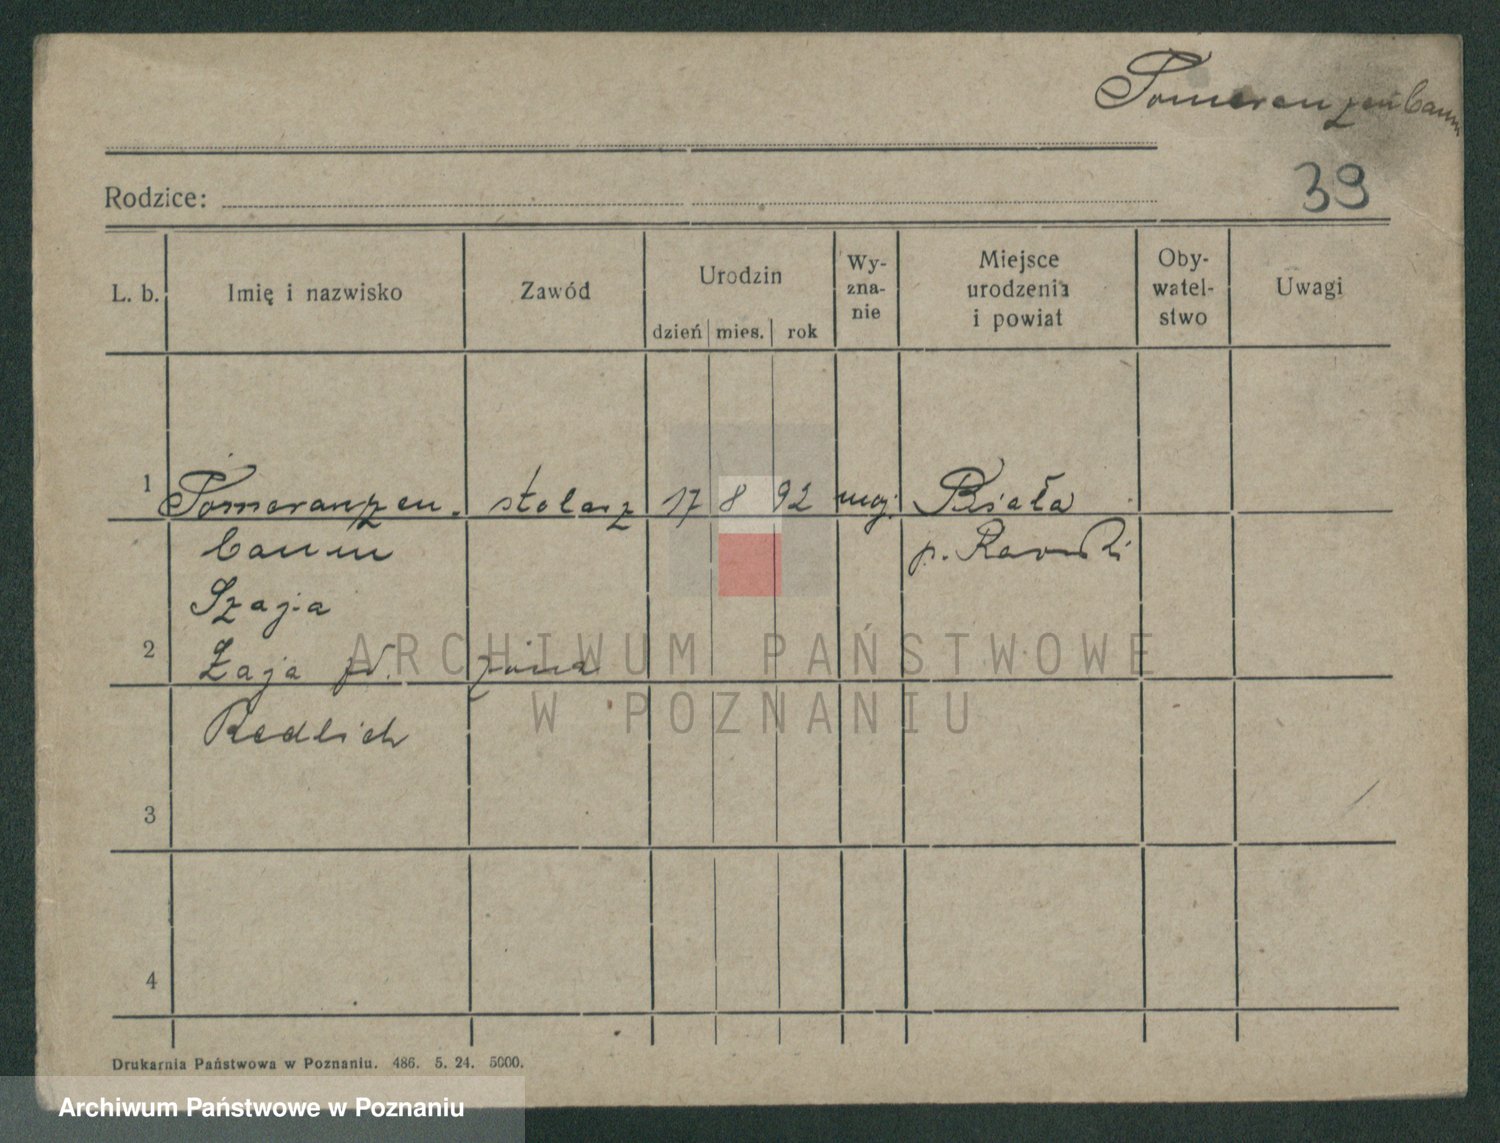 Pomeranzenbaum
39
Rodzice:
L. b. Imię i nazwisko Zawód Urodzin dzień mies. rok Wy-zna-nie Miejsce urodzenia i powiat Oby-watel-stwo Uwagi
1 Pomeranzen. stolarz 17 8 92 moj. Biała
baum p. Rawski
Szaja
2 Łaja zd. żona
Redlich
3
4
Drukarnia Państwowa w Poznaniu. 486. 5. 24. 5000.
ARCHIWUM PAŃSTWOWE
W POZNANIU
Archiwum Państwowe w Poznaniu